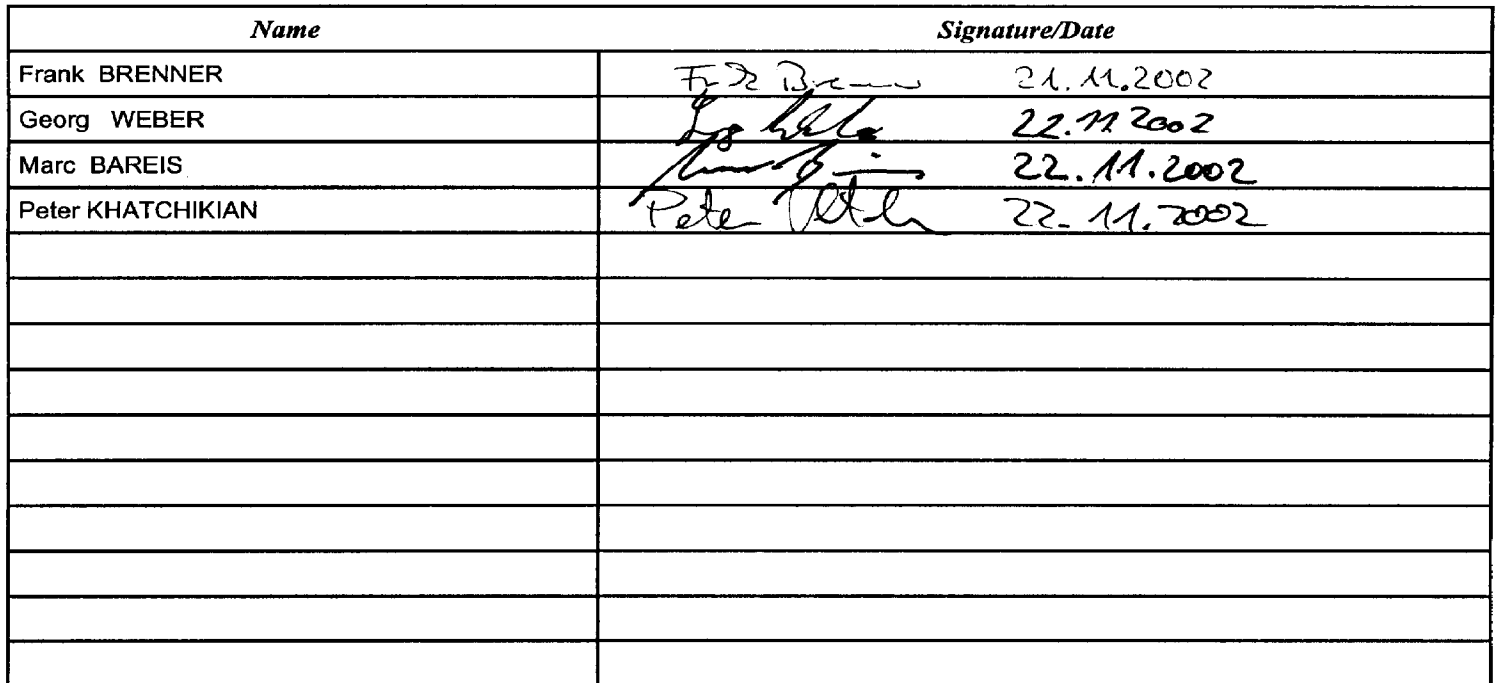 Name Signature/Date
Frank BRENNER 21.11.2002
Georg WEBER 22.11 2002
Marc BAREIS 22.11.2002
Peter KHATCHIKIAN Peter 22.11.2002